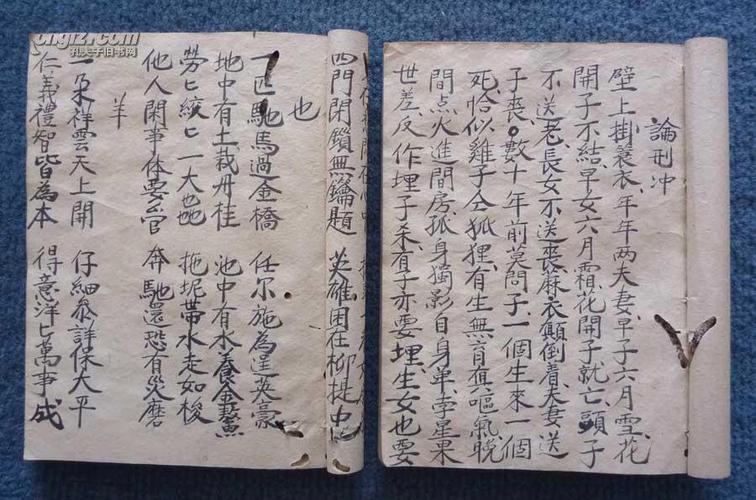 論刑冲
壁上掛蓑衣、年年两夫妻、早子六月雪、花
開子不结、早女六月霜、花開子就亡、頭子
不送老、長女不送喪、麻衣顛倒着、夫妻送
子喪。數十年前莫問子、一個生來一個
死、恰似雞子仝狐狸、有生無育真嘔氣、脫
間点火進間房、孤身獨影自身单、幸星果
世差、反作埋子杀、有子亦要埋、生女也要
四門閉鎖無鑰題 英雄困在柳提中
也
一匹馳馬過金橋 任尔施為逞英豪
地中有土栽丹桂 池中有水養金鰲
勞匕 匕一大 拖坭帶水走如梭
他人閑事休要管 奔馳還恐有災磨
羊
一朵祥雲天上開 仔細參詳保太平
仁義禮智皆為本 得意洋匕萬事成
孔夫子旧书网